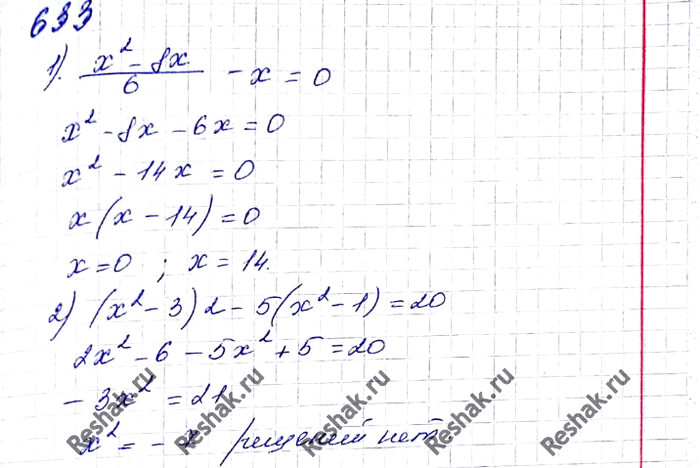 633
1). (x² - 8x)/6 - x = 0
x² - 8x - 6x = 0
x² - 14x = 0
x(x - 14) = 0
x = 0 ; x = 14.
2) (x² - 3)2 - 5(x² - 1) = 20
2x² - 6 - 5x² + 5 = 20
- 3x² = 21
x² = - 7 решений нет
Reshak.ru Reshak.ru Reshak.ru Reshak.ru Reshak.ru